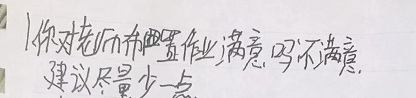 1.你对老师布置作业满意吗不满意.
建议尽量少一点